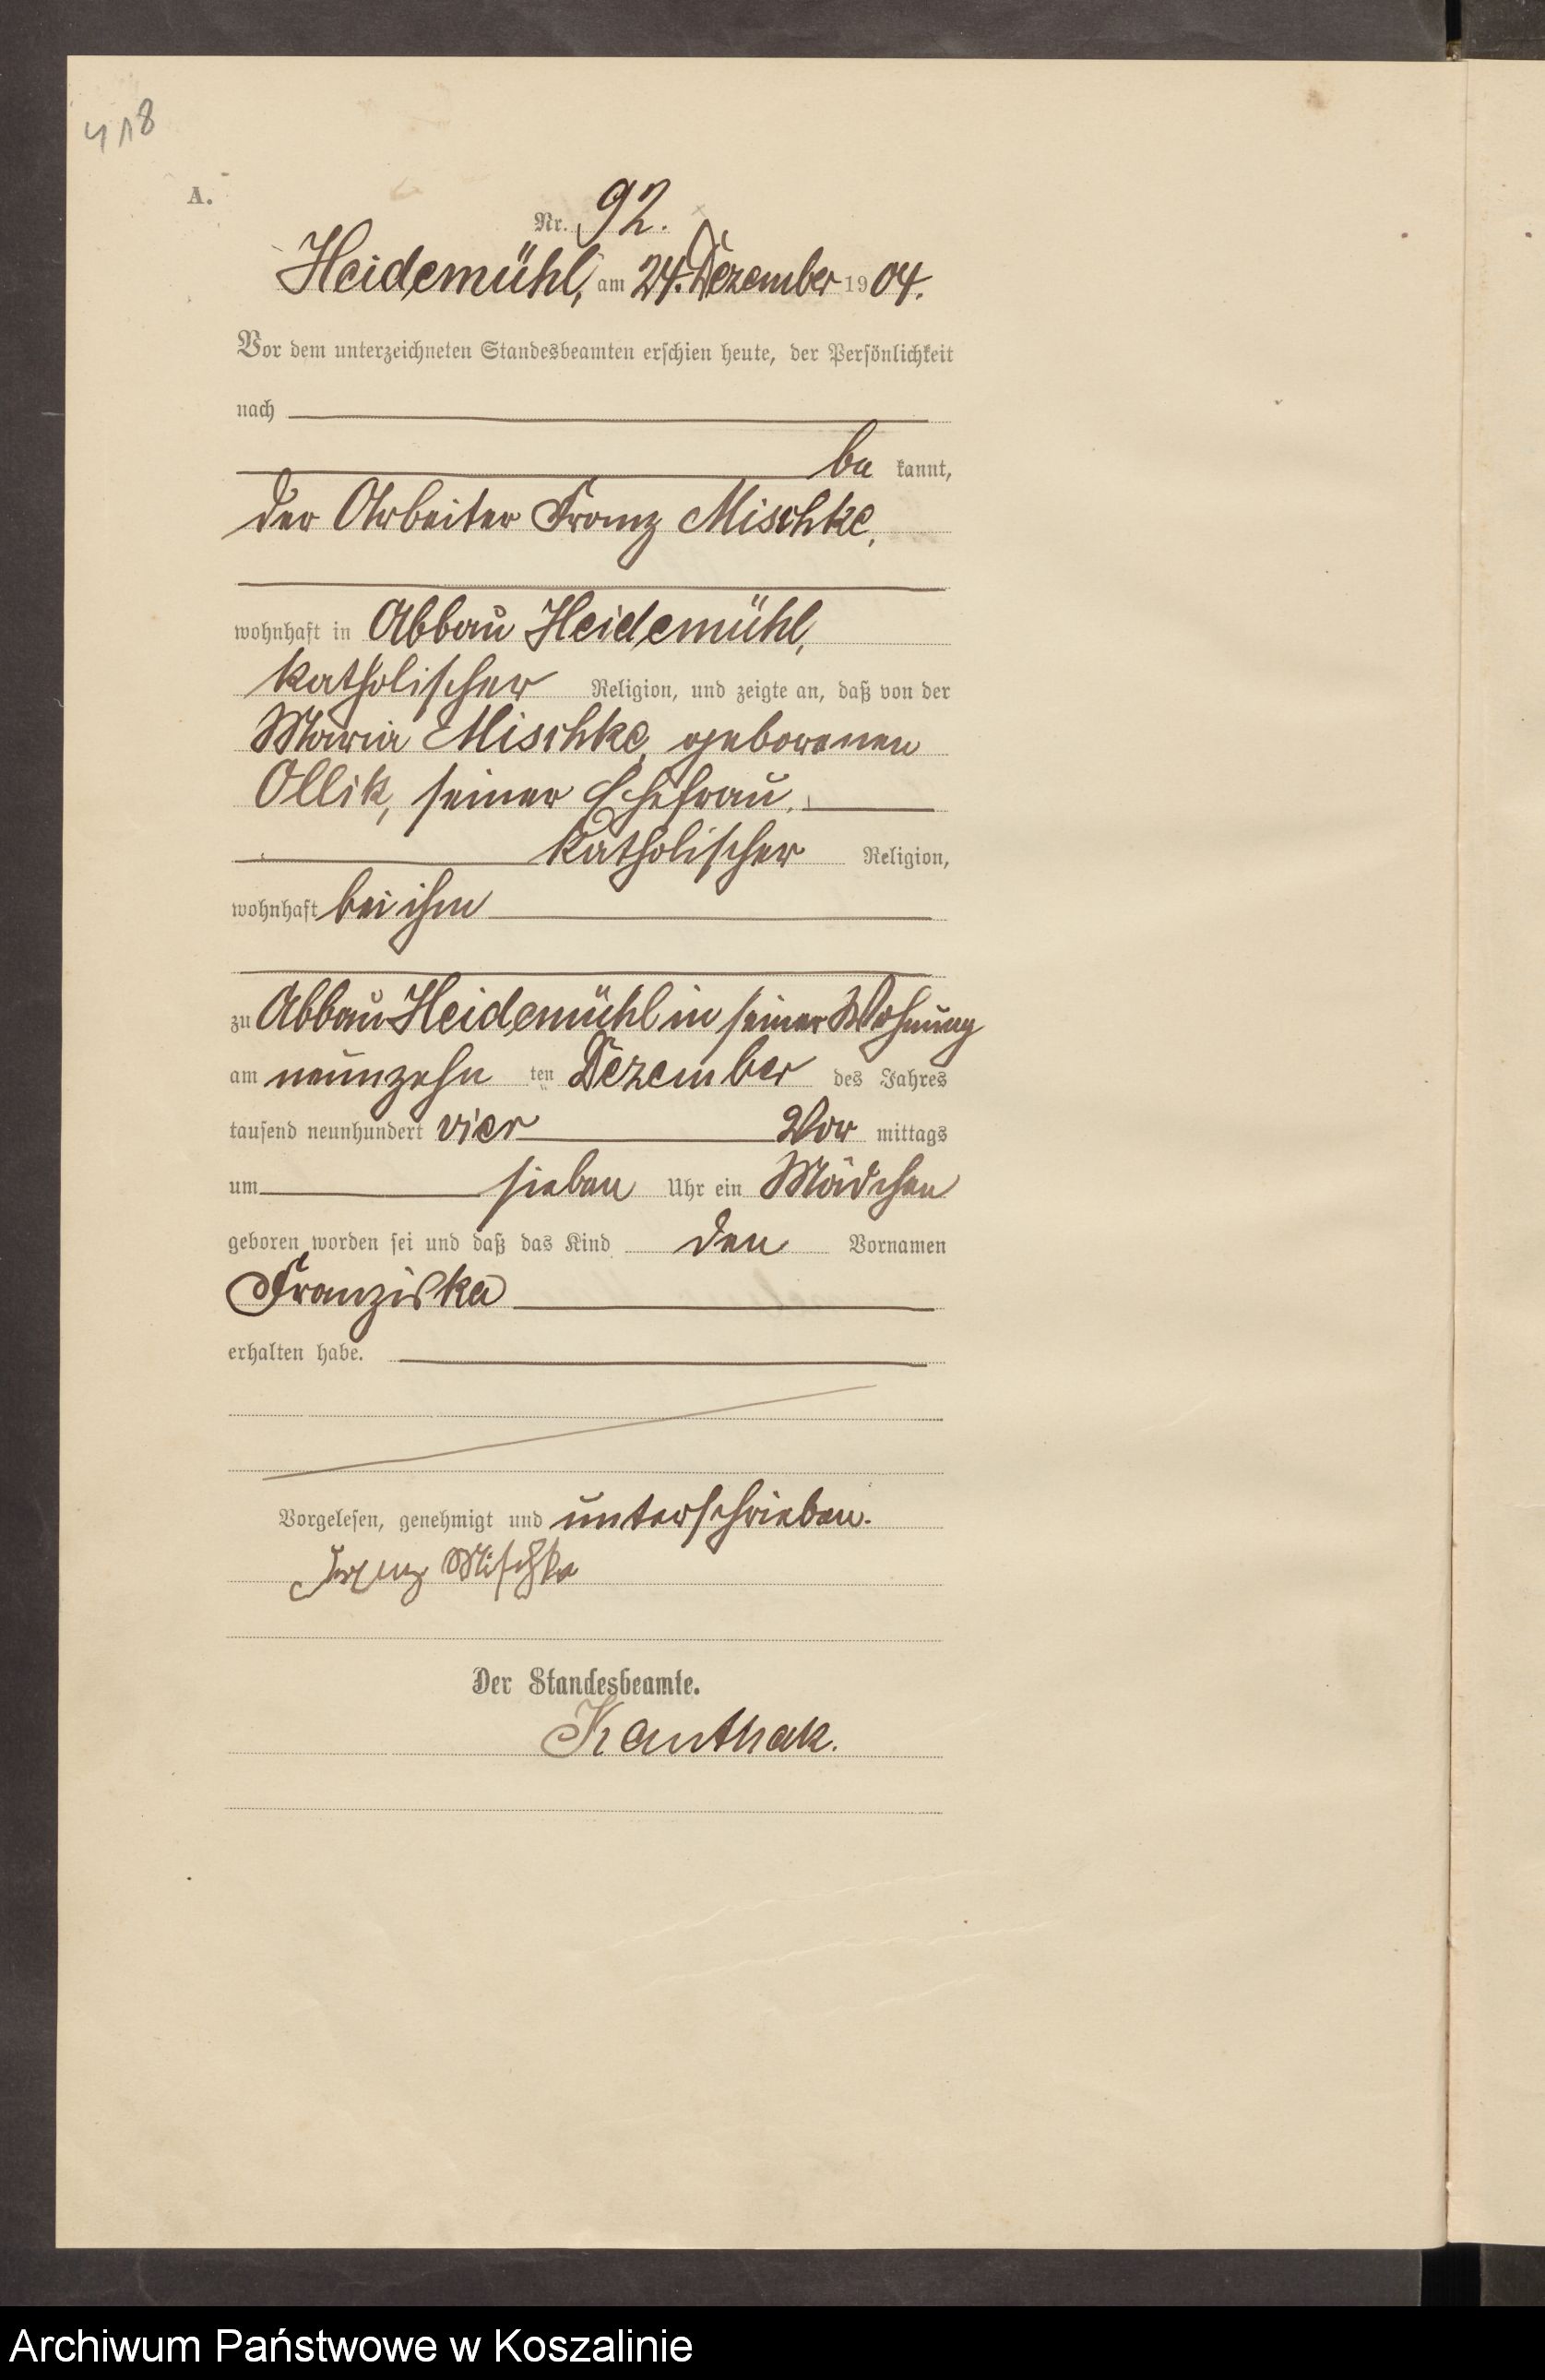 418
A.
Nr. 92.
Heidemühl, am 24. Dezember 1904.
Vor dem unterzeichneten Standesbeamten erschien heute, der Persönlichkeit
nach
be kannt,
der Arbeiter Franz Mischke,
wohnhaft in Abbau Heidemühl,
katholischer Religion, und zeigte an, daß von der
Maria Mischke, geborenen
Ollik, seiner Ehefrau,
katholischer Religion,
wohnhaft bei ihm
zu Abbau Heidemühl in seiner Wohnung
am neunzehn ten Dezember des Jahres
tausend neunhundert vier Vor mittags
um sieben Uhr ein Mädchen
geboren worden sei und daß das Kind den Vornamen
Franziska
erhalten habe.
Vorgelesen, genehmigt und unterschrieben.
Franz Mischke
Der Standesbeamte.
Kanthak.
Archiwum Państwowe w Koszalinie